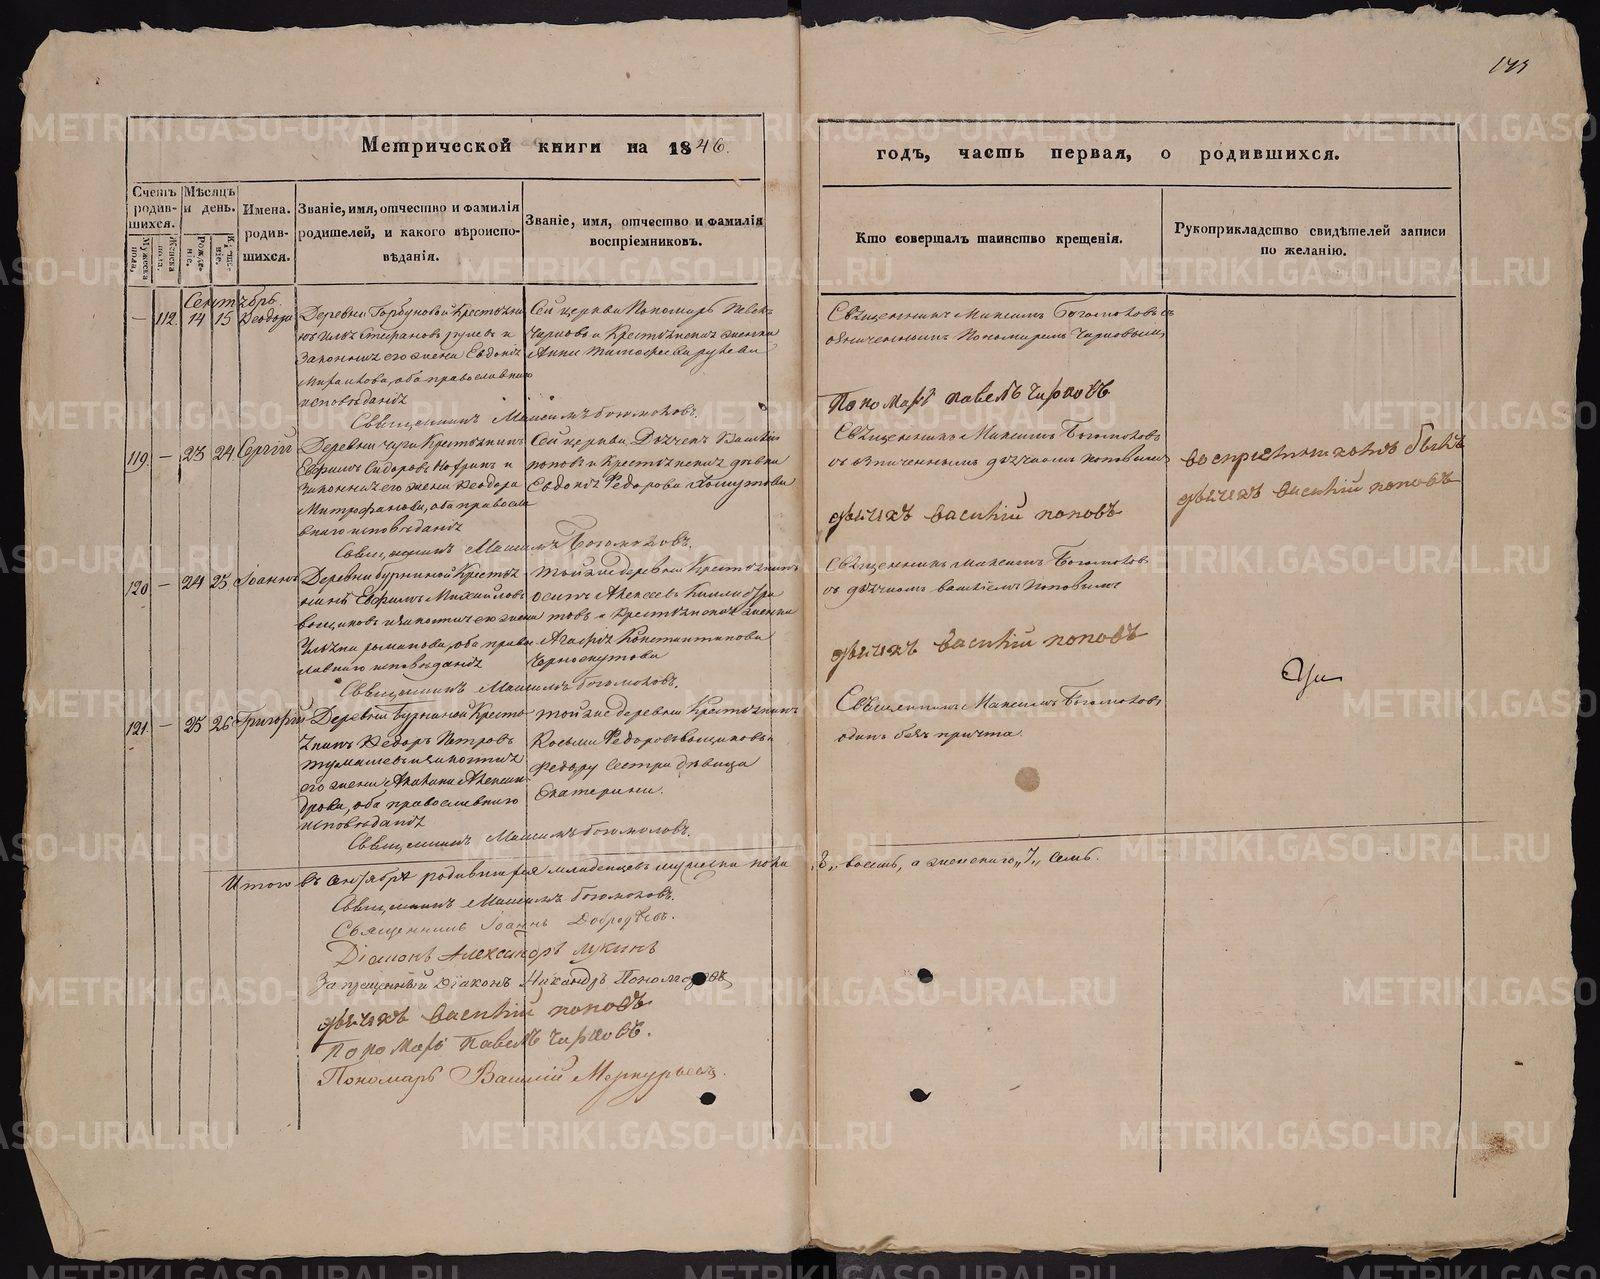 143
Метрической книги на 1846.
годъ, часть первая, о родившихся.
Счетъ родившихся.
Мужеска пола.
Женска пола.
Мѣсяцъ и день.
Рожденіе.
Крещеніе.
Имена родившихся.
Званіе, имя, отчество и фамилія
родителей, и какого вѣроиспо-
вѣданія.
Званіе, имя, отчество и фамилія
воспріемниковъ.
Кто совершалъ таинство крещенія.
Рукоприкладство свидѣтелей записи
по желанію.
Сентябрь
— 112 14 15 Ѳеодора
Деревни Горбуновой Крестьяни
нъ Илья Стефановъ и
законная его жена Евдокія
оба православнаго
исповѣданія
Сей церкви Пономарь Павелъ
Чирковъ и Крестьянская женка
Анна Тимофеева
Священникъ Максимъ Богомоловъ съ
означеннымъ Пономаремъ Чирковымъ
Пономарь Павелъ Чирковъ
Священникъ Максимъ Богомоловъ.
119 — 23 24 Сергій
Деревни Крестьянинъ
Евфимъ Сидоровъ и
законная его жена Ѳеодора
Митрофанова, оба правосла
внаго исповѣданія
Сей церкви Дьячекъ Василій
Поповъ и Крестьянская дѣвка
Евдокія Ѳедорова
Священникъ Максимъ Богомоловъ
съ означеннымъ дьячкомъ Поповымъ
дьячекъ Василій Поповъ
воспріемникомъ былъ
дьячекъ Василій Поповъ
Священникъ Максимъ Богомоловъ.
120 — 24 25 Іоаннъ
Деревни Бурниной Крестья
нинъ Евфимъ Михайловъ
и законная его жена
Романова, оба право
славнаго исповѣданія
Той же деревни Крестьянинъ
Осипъ Алексеевъ
и Крестьянская женка
Агафія Константинова
Черноскутова
Священникъ Максимъ Богомоловъ
съ дьячкомъ Василіемъ Поповымъ
дьячекъ Василій Поповъ
Священникъ Максимъ Богомоловъ.
121 — 25 26 Григорій
Деревни Бурниной Кресть
янинъ Ѳедоръ Петровъ
и законная
его жена Алексан
дрова, оба православнаго
исповѣданія
Той же деревни Крестьянинъ
Косьма Ѳедоровъ
Федору Сестра дѣвица
Екатерина.
Священникъ Максимъ Богомоловъ
одинъ безъ причта.
Священникъ Максимъ Богомоловъ.
Итого въ Сентябрѣ родившихся младенцевъ мужеска пола
„8„ восемь, а женскаго „7„ семь.
Священникъ Максимъ Богомоловъ.
Священникъ Іоаннъ
Діаконъ Александръ Лукинъ
Запрещенный Діаконъ Никандръ Пономаревъ
дьячекъ Василій Поповъ
Пономарь Павелъ Чирковъ.
Пономарь Василій Меркурьевъ.
METRIKI.GASO-URAL.RU